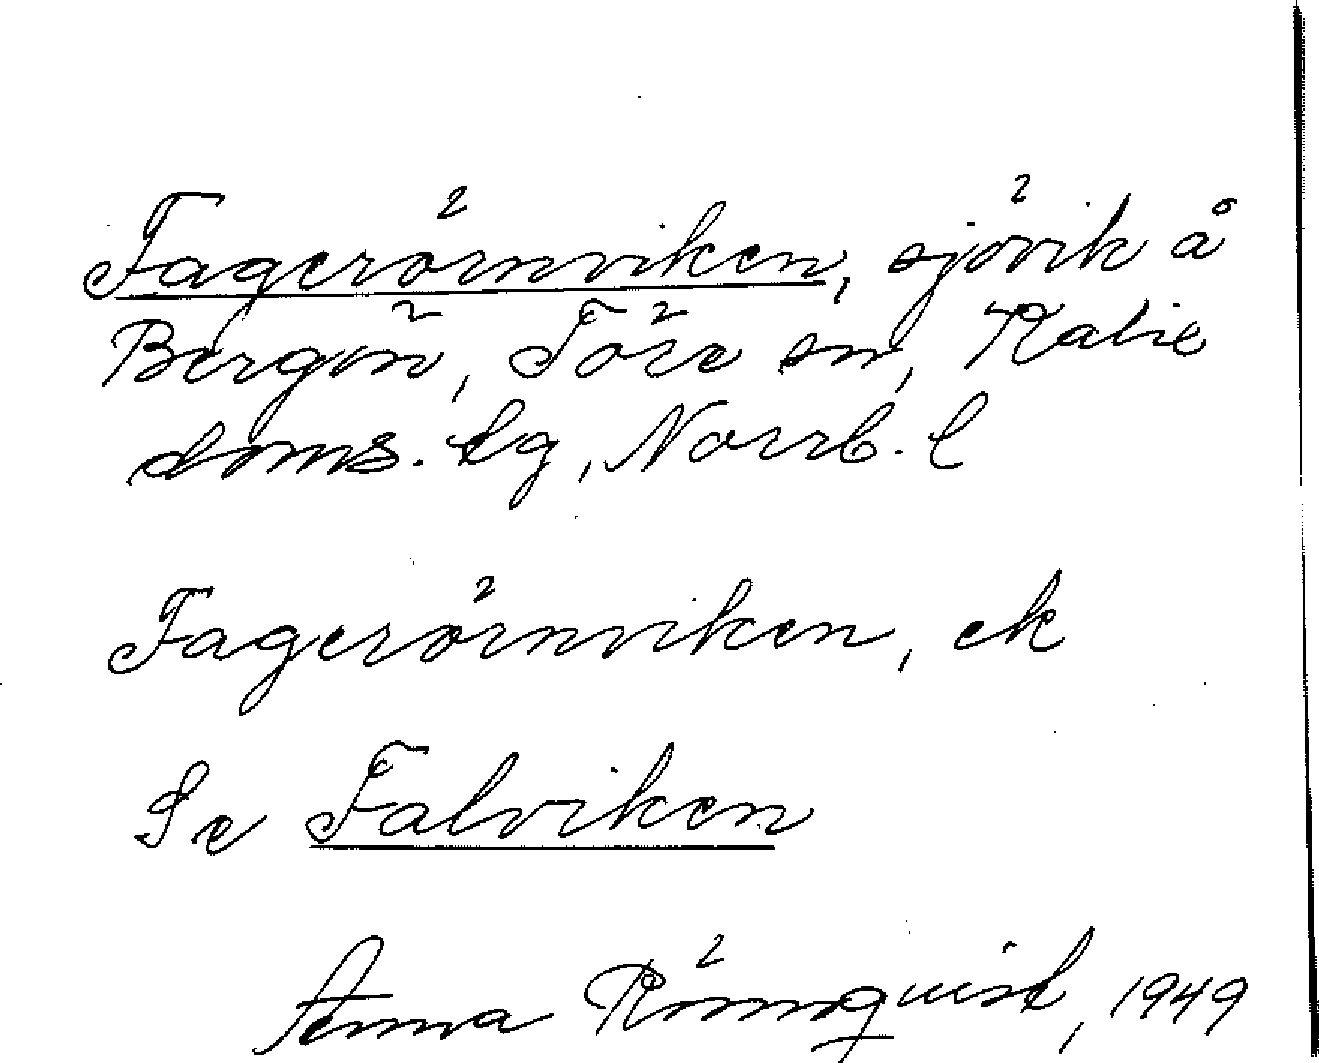 Fagerörnviken, sjövik å
Bergön, Töre sn, Kalix
doms. lg, Norrb. l
Fagerörnviken, ek
Se Falviken
Anna Rönnqvist, 1949